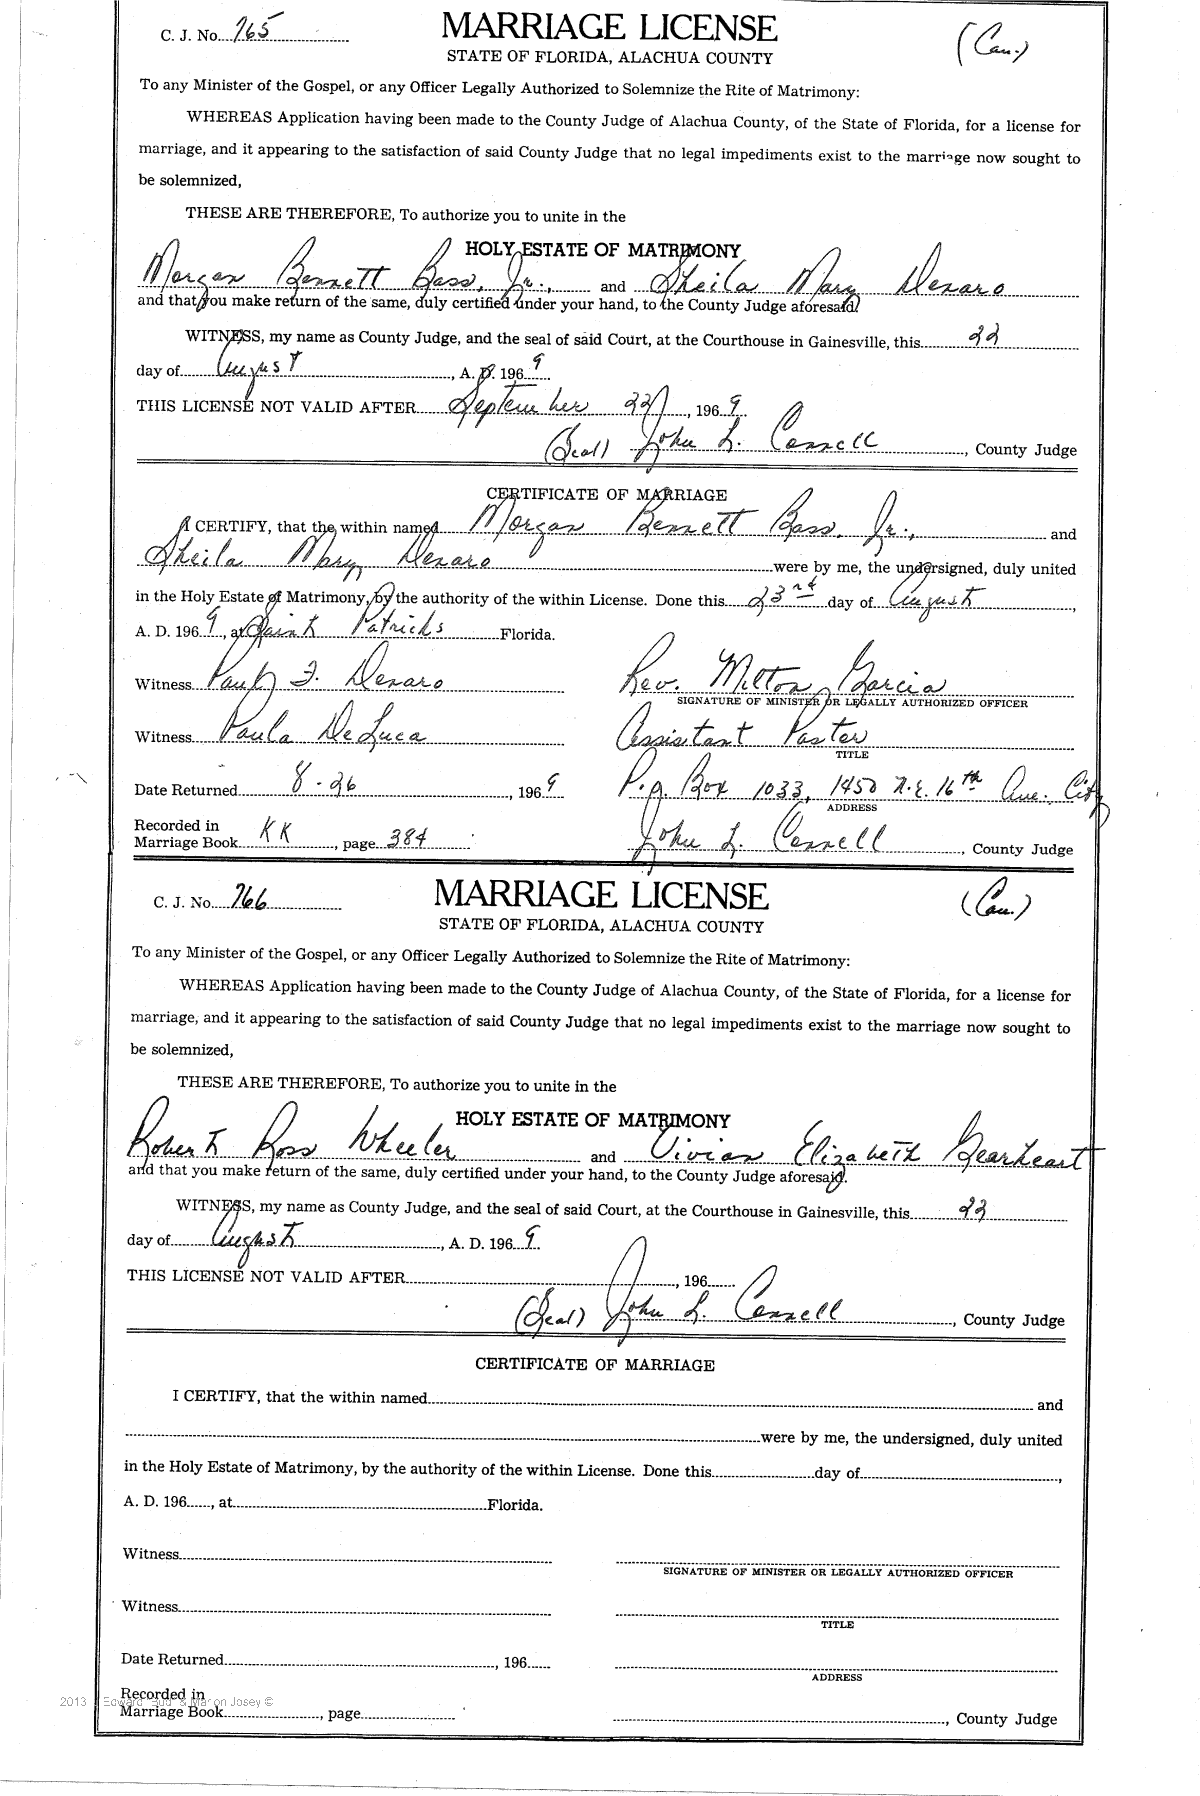 C. J. No. 765
MARRIAGE LICENSE
(Cau.)
STATE OF FLORIDA, ALACHUA COUNTY
To any Minister of the Gospel, or any Officer Legally Authorized to Solemnize the Rite of Matrimony:
WHEREAS Application having been made to the County Judge of Alachua County, of the State of Florida, for a license for
marriage, and it appearing to the satisfaction of said County Judge that no legal impediments exist to the marriage now sought to
be solemnized,
THESE ARE THEREFORE, To authorize you to unite in the
HOLY ESTATE OF MATRIMONY
Morgan Bennett Bass, Jr., and Sheila Mary Denaro
and that you make return of the same, duly certified under your hand, to the County Judge aforesaid.
WITNESS, my name as County Judge, and the seal of said Court, at the Courthouse in Gainesville, this 22
day of August, A. D. 1969
THIS LICENSE NOT VALID AFTER September 22, 1969
(Seal) John L. Connell, County Judge
CERTIFICATE OF MARRIAGE
I CERTIFY, that the within named Morgan Bennett Bass, Jr., and
Sheila Mary Denaro were by me, the undersigned, duly united
in the Holy Estate of Matrimony, by the authority of the within License. Done this 23rd day of August,
A. D. 1969, at Saint Patricks Florida.
Witness Paul F. Denaro Rev. Milton Garcia
SIGNATURE OF MINISTER OR LEGALLY AUTHORIZED OFFICER
Witness Paula DeLuca Assistant Paster
TITLE
Date Returned 8-26, 1969 P.O. Box 1033, 1450 N.E. 16th Ave. City
ADDRESS
Recorded in
Marriage Book KK, page 384 John L. Connell, County Judge
C. J. No. 766
MARRIAGE LICENSE
(Cau.)
STATE OF FLORIDA, ALACHUA COUNTY
To any Minister of the Gospel, or any Officer Legally Authorized to Solemnize the Rite of Matrimony:
WHEREAS Application having been made to the County Judge of Alachua County, of the State of Florida, for a license for
marriage, and it appearing to the satisfaction of said County Judge that no legal impediments exist to the marriage now sought to
be solemnized,
THESE ARE THEREFORE, To authorize you to unite in the
HOLY ESTATE OF MATRIMONY
Robert Ross Wheeler and Vivian Elizabeth Gearheart
and that you make return of the same, duly certified under your hand, to the County Judge aforesaid.
WITNESS, my name as County Judge, and the seal of said Court, at the Courthouse in Gainesville, this 22
day of August, A. D. 1969.
THIS LICENSE NOT VALID AFTER, 196
(Seal) John L. Connell, County Judge
CERTIFICATE OF MARRIAGE
I CERTIFY, that the within named and
were by me, the undersigned, duly united
in the Holy Estate of Matrimony, by the authority of the within License. Done this day of,
A. D. 196, at Florida.
Witness
SIGNATURE OF MINISTER OR LEGALLY AUTHORIZED OFFICER
Witness
TITLE
Date Returned, 196
ADDRESS
Recorded in
2013 Edward "Bud" & Marion Josey ©
Marriage Book, page , County Judge